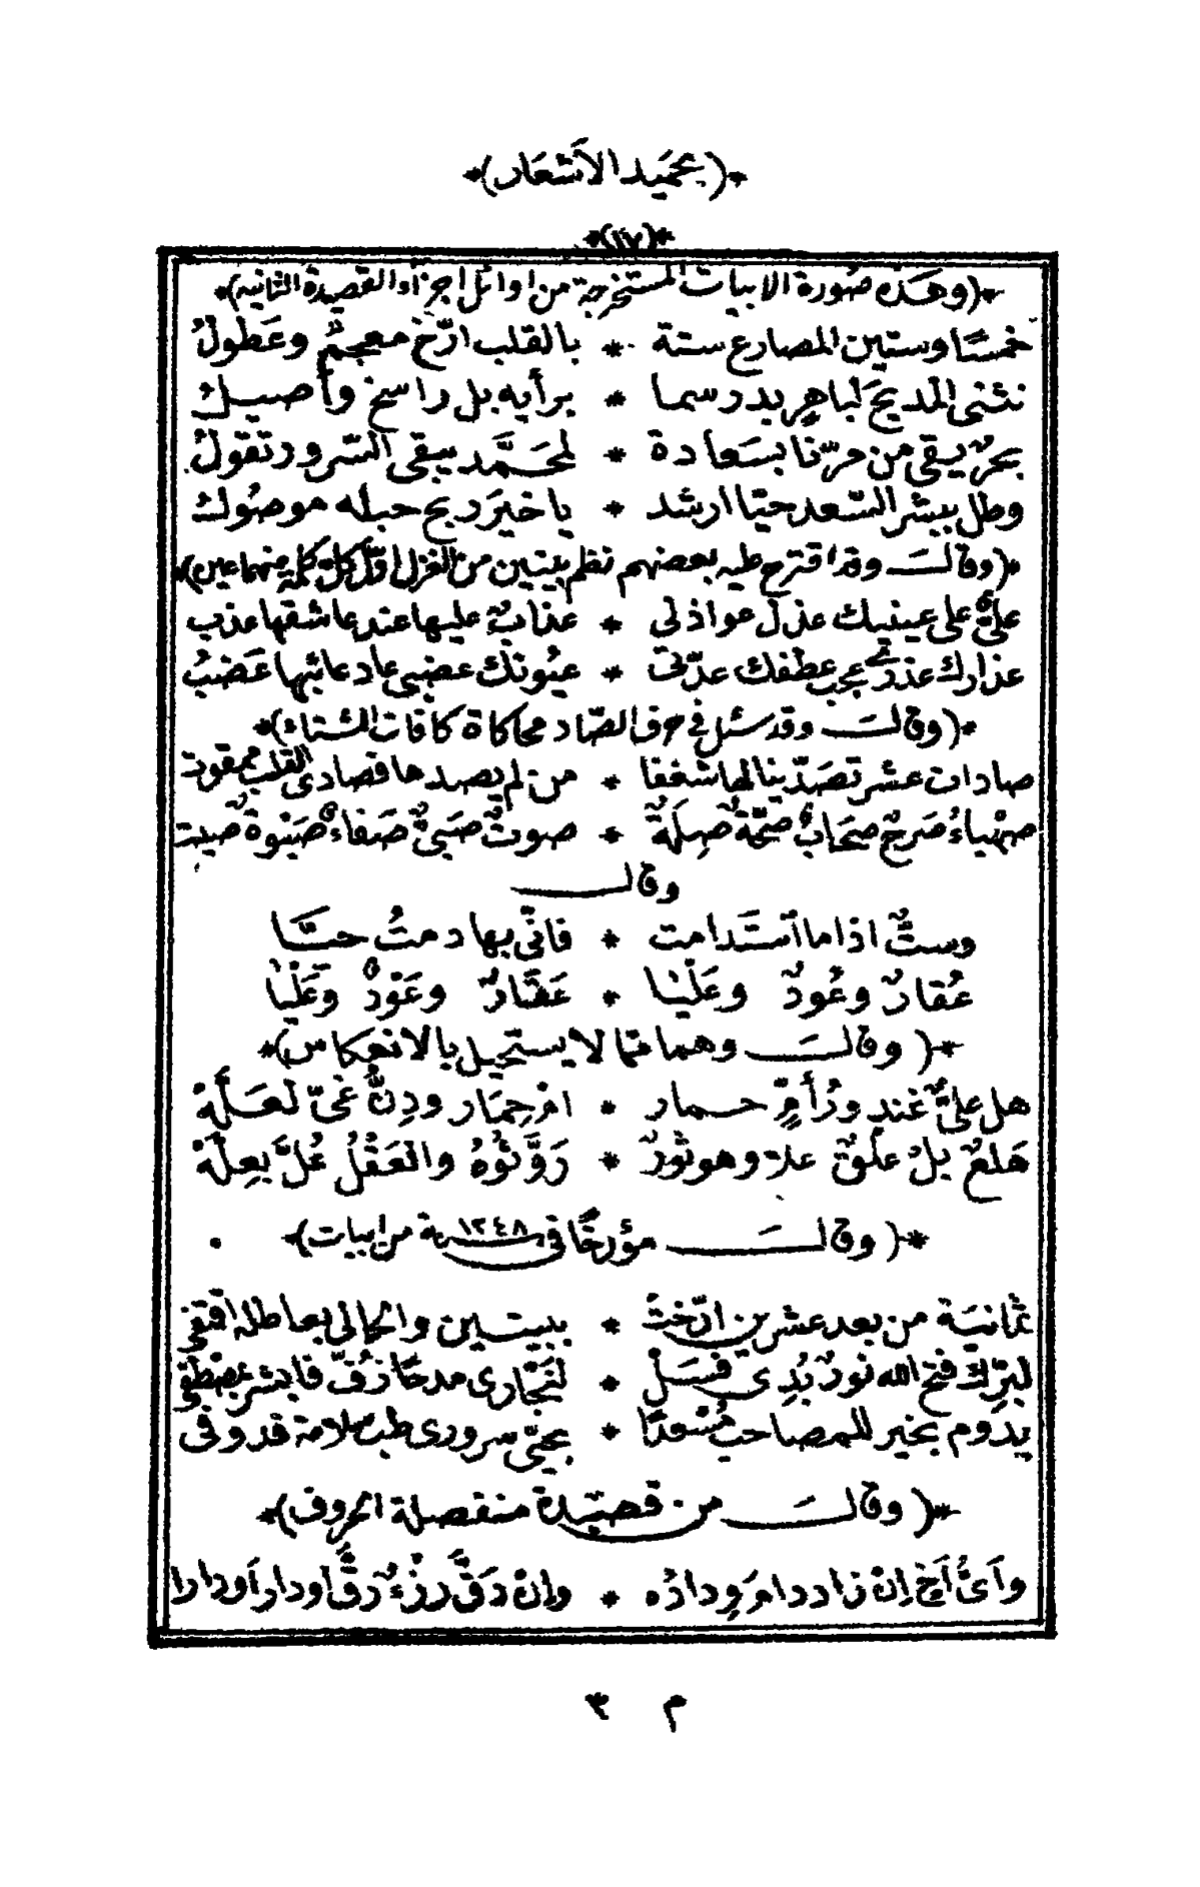 *(بحميد الأشعار)*
*(١٧)*
*(وهذه صورة الابيات المستخرجة من اوائل اجزاء القصيدة الثانيه)*
خمسًا وستين المصارع ستة * بالقلب ارّخ معجمٌ وعَطولُ
نثنى المديحَ لباهرٍ بدر سما * برأيه بل راسخ وأصيل
بحرٌ يقى من حرّنا بسَعادة * لمحَمَّد يبقى السّرور تقولُ
وطل ببشر السّعد حيّا ارشد * يا خيرَ ربح حبله موصُول
*(وقالَ وقد اقترح عليه بعضهم نظم بيتين من الغزل اوّل كل كلمة منهما عين)*
علىَّ على عينيك عذل عواذلى * عذابٌ عليها عند عاشقها عذب
عذارك عذرى عجب عطفك عدّتى * عيُونك عضبى عاد عاتبها عَضبُ
*(وقالَ وقد سئل فى حرف الصّاد محاكاة كافات الشتاء)*
صادات عشر تصَدّينا لها شغفا * من لم يصدها فصادى القلب ممقوت
صهْباءُ صَرحٌ صحَابٌ صحّةٌ صِلَةٌ * صوتٌ صَبىٌّ صَفاءٌ صَبْوةٌ صيت
وقال
وستٌّ اذا ما اسْتَدامت * فانّى بها دمتُ حيَّا
عُقارٌ وعُودٌ وعَلْيَا * عَقَارٌ وعَوْدٌ وعَلْيَا
*(وقالَ وهما ممّا لا يستحيل بالانعكاس)*
هل علىٌّ عند ورُأمٍ حمار * امْرحِمَار ودِنٌّ عَىّ لعَلَّهْ
هَلعٌ بلْ علقٌ علا وهو ثورٌ * رَوَّثوْهُ والعَقْلُ عُلَّ بعِلَّهْ
*(وقالَ مؤرخًا فى سنة ١٢٤٨ من ابيات)*
ثمانيَة من بعد عشرين ارّختْ * ببيتين والحالى بعاطله اقتفى
لبرّك فتح الله نورٌ بُدِى فسَلْ * لنَجّارى مدحًا زُفّ فابشر
يدوم بخير للمصاحب مُسْعدًا * بحبّى سرورى طب سلامة قد وفى
*(وقالَ من قصيَدة منفصلة الحروف)*
وأَىُّ أَخٍ إنْ زاد دامَ وِدادُه * وإنْ دَقَّ رزْءٌ رَقَّ اودارَ أودارا
م ٣